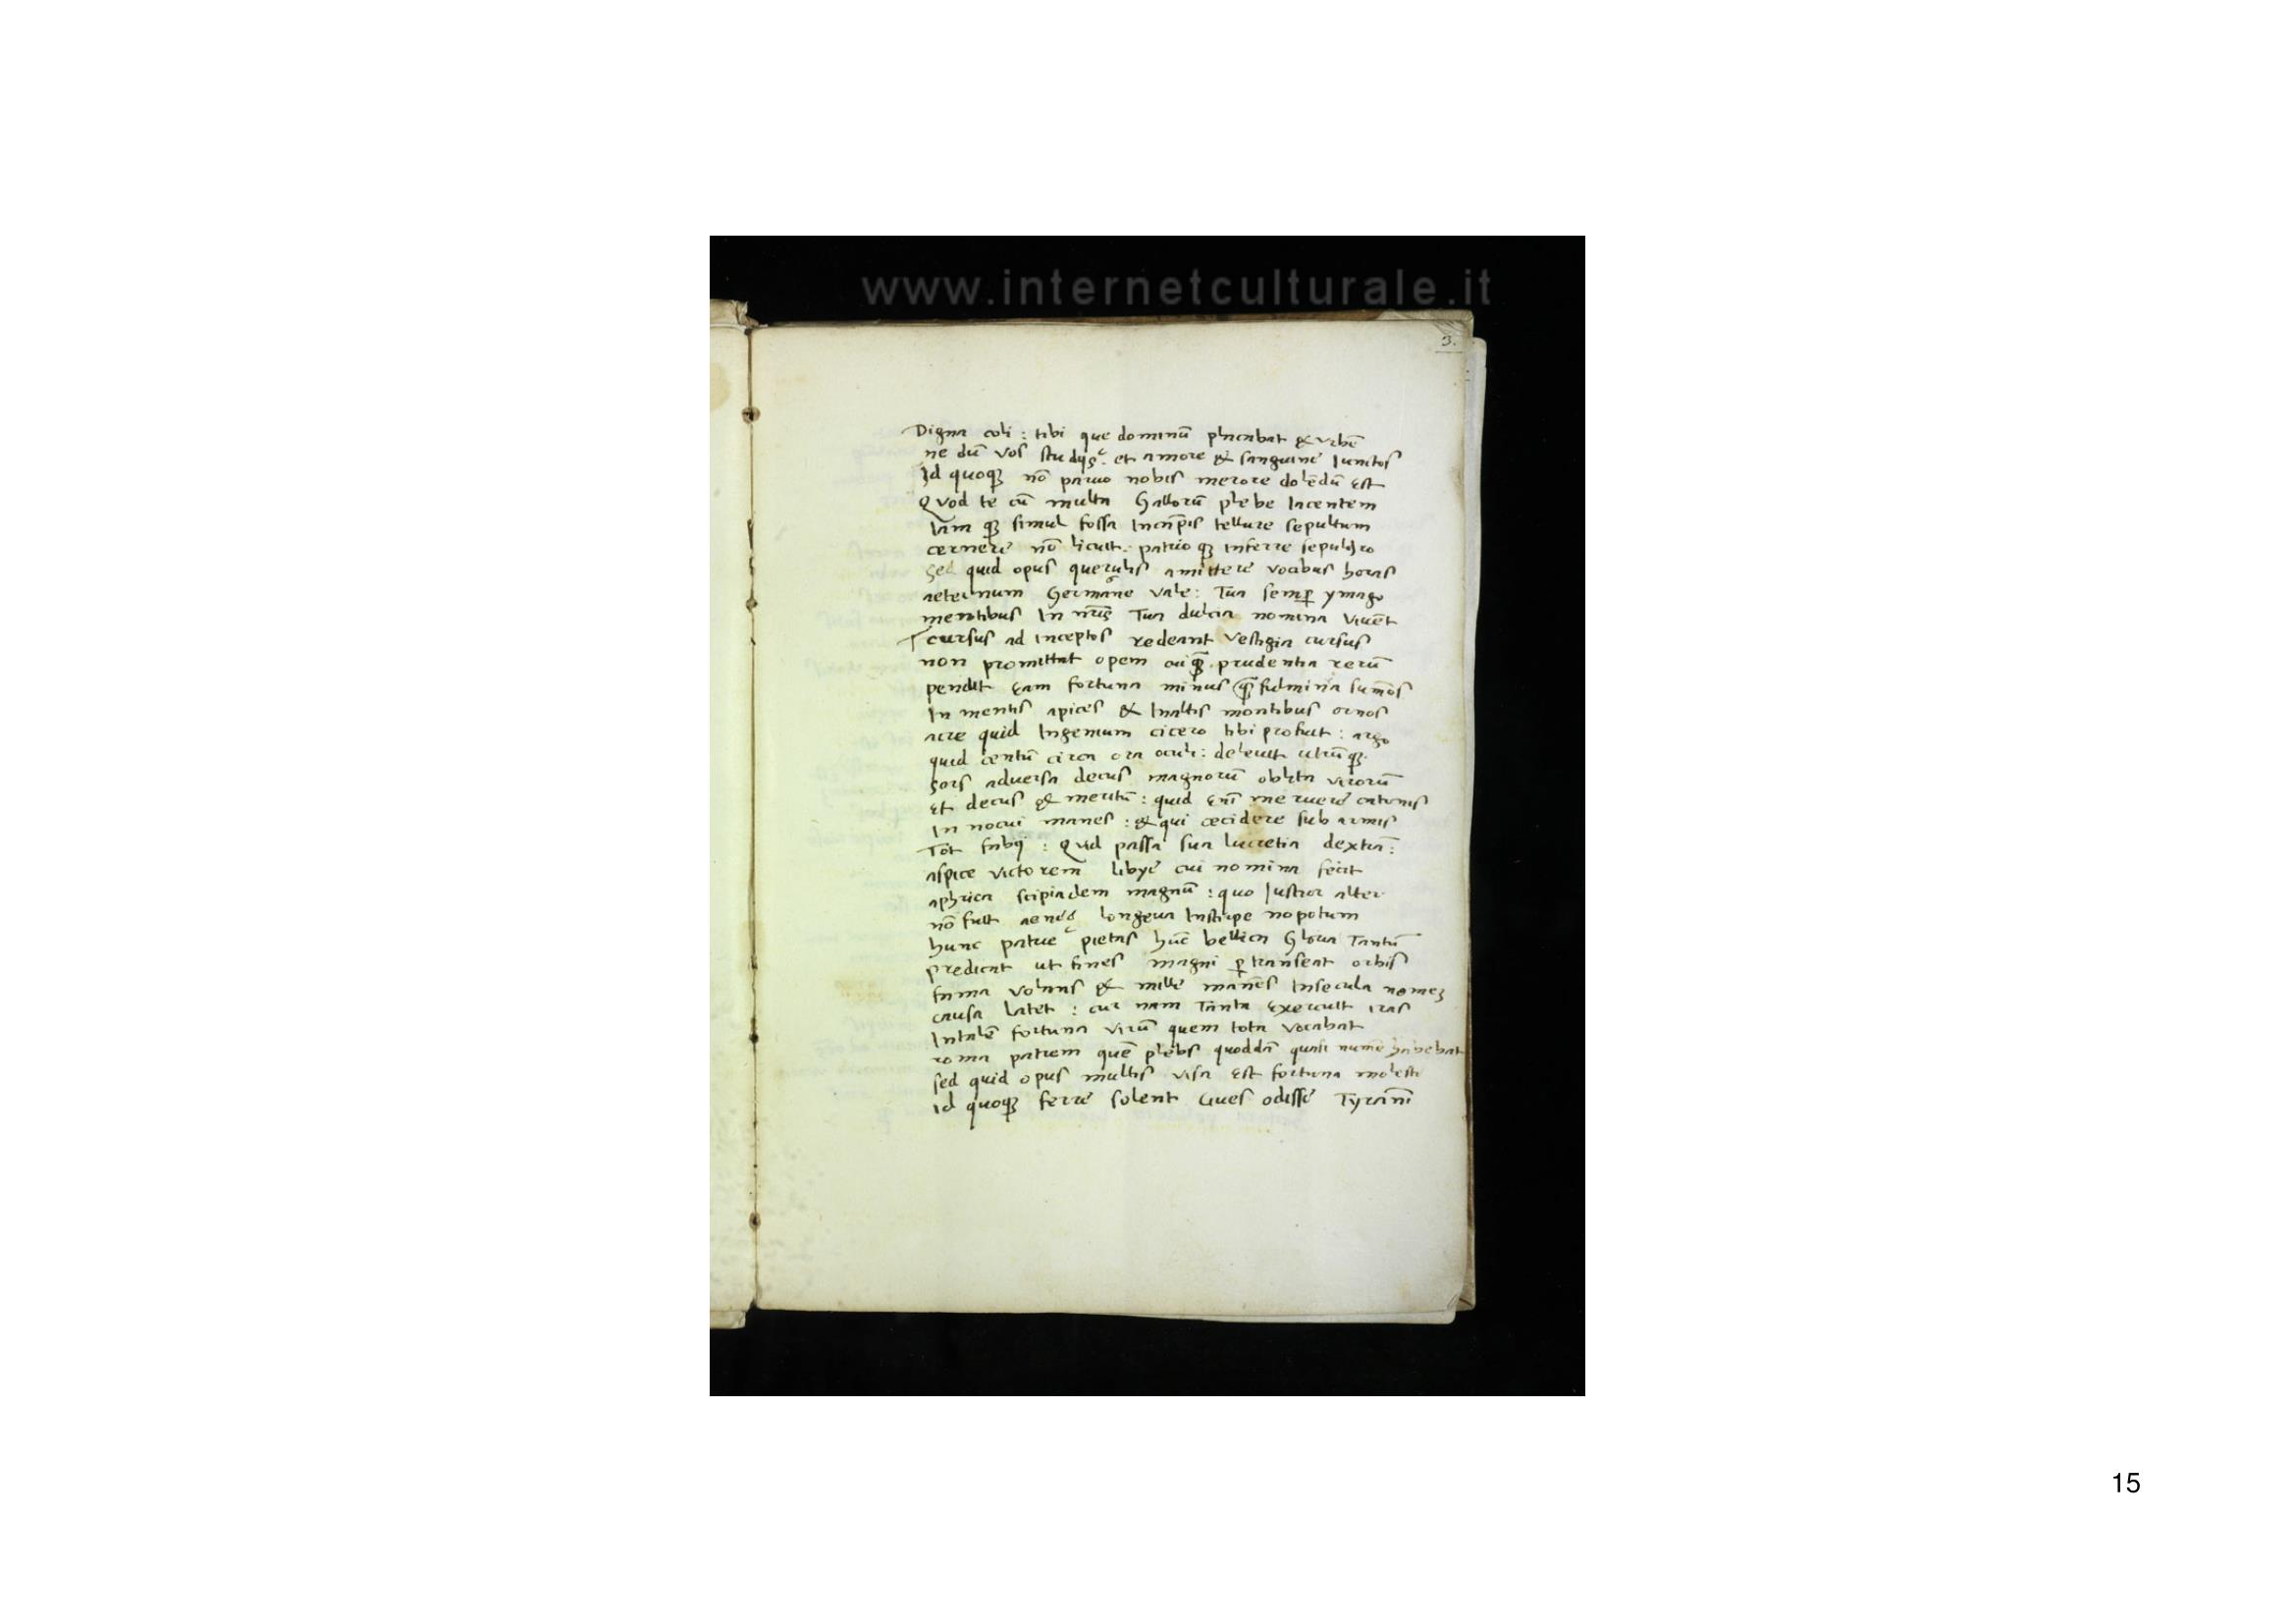 www.internetculturale.it
3.
Digna coli : tibi que dominū placabat & vrbē
ne dū vos studijs et amore & sanguine Iunctos
Id quoqꝫ nō paruo nobis merore dolēdū est
Quod te cū multa Gallorū plebe Iacentem
Iam qꝫ simul fossa tellure sepultum
cernere nō licuit. patrio qꝫ inferre sepulchro
sed quid opus querulis amittere vocibus horas
aeternum Germane vale : Tua semꝑ ymago
mentibus In nr̄is Tua dulcia nomina viuēt
cursus ad Inceptos redeant vestigia cursus
non promittat opem prudentia rerū
pendit eam fortuna minus fulmina sum̄os
In mentis apices & Inaltis montibus ornos
acre quid Ingenium cicero tibi profuit : argo
quid centū circa ora oculi : deleuit utrūqꝫ
sors aduersa decus magnorū oblita virorū
et decus & meritū : quid eni᷄ meruere catonis
In nocui manes : & qui cecidere sub armis
Tot fabij : Quid passa sua lucretia dextra :
aspice victorem libye cui nomina fecit
aphrica scipiadem magnū : quo Iustior alter
nō fuit longeua Instirpe nopotum
hunc patrie pietas hūc bellica Gloria Tantū
predicat ut fines magni ꝑtranseat orbis
fama volans & mille manēs Insecula nomeꝫ
causa latet : cur nam Tanta exercuit iras
Intalē fortuna virū quem tota vocabat
roma patrem quē plebs quoddā quasi numē habebat
sed quid opus multis visa est fortuna molesti
id quoqꝫ ferre solent Ciues odisse Tyran̄i
15